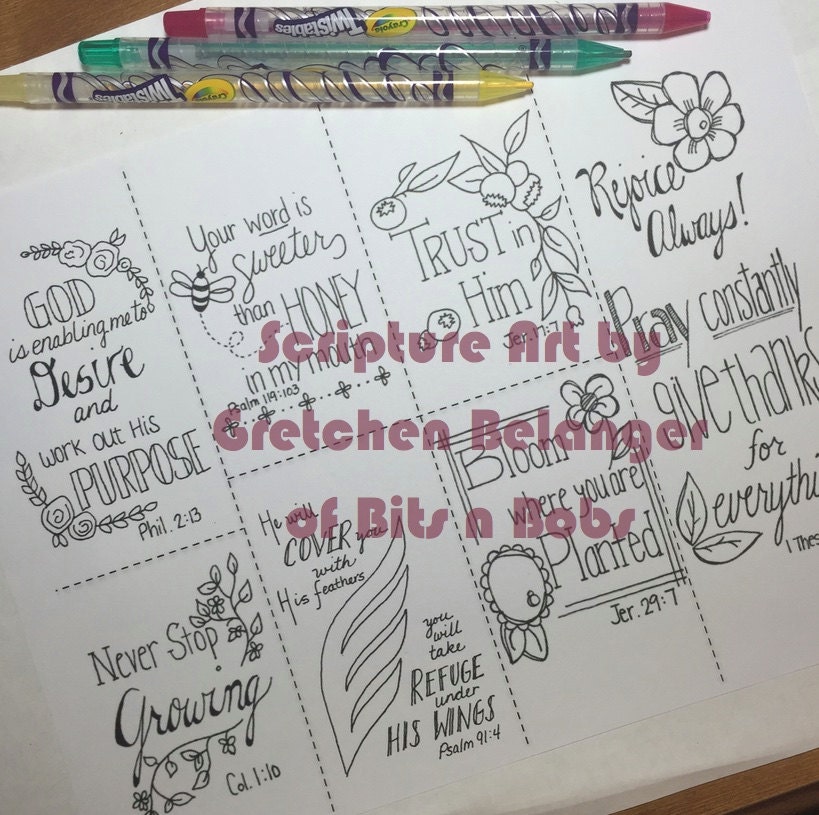 Crayola
TWISTABLES
Crayola
TWISTABLES
Crayola
TWISTABLES
GOD
is enabling me to
Desire
and
work out His
PURPOSE
Phil. 2:13
Your word is
sweeter
than HONEY
in my mouth
Psalm 119:103
TRUST in
Him
Jer. 17:7
Rejoice
Always!
Pray constantly
give thanks
for
everythi
1 Thes
Never Stop
Growing
Col. 1:10
He will
COVER you
with
His feathers
you
will
take
REFUGE
under
HIS WINGS
Psalm 91:4
Bloom
where you are
Planted
Jer. 29:7
Scripture Art by
Gretchen Belanger
of Bits n Bobs